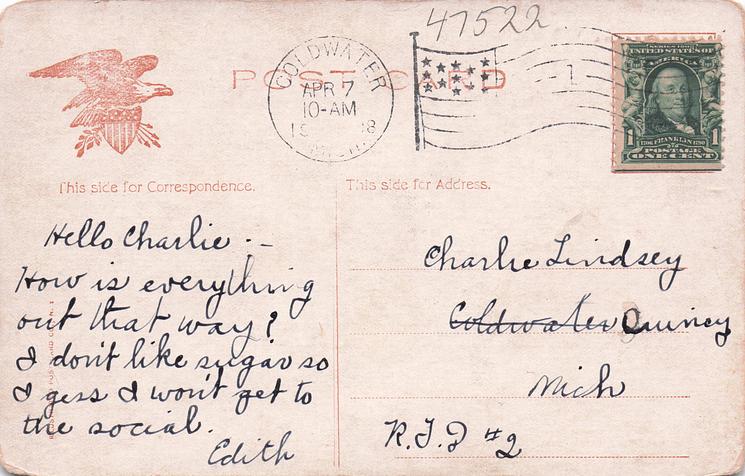 47522
COLDWATER
APR 7
10-AM
MICH.
POST CARD
1
SERIES 1902
UNITED STATES OF
AMERICA
1 1706 FRANKLIN 1790 1
POSTAGE
ONE CENT
This side for Correspondence.
This side for Address.
Hello Charlie :-
How is everything
out that way?
I don't like sugar so
I gess I won't get to
the social.
Edith
Charlie Lindsey
Coldwater Quincy
Mich
R.F.D #2